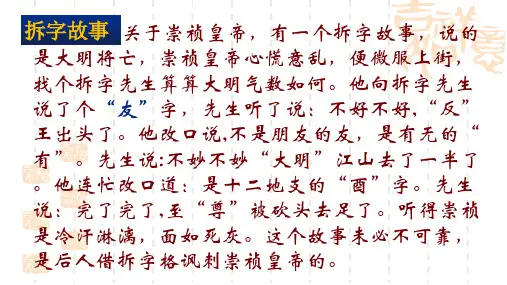 拆字故事 关于崇祯皇帝，有一个拆字故事，说的
是大明将亡，崇祯皇帝心慌意乱，便微服上街，
找个拆字先生算算大明气数如何。他向拆字先生
说了个“友”字，先生听了说：不好不好,“反”
王出头了。他改口说,不是朋友的友，是有无的“
有”。先生说:不妙不妙“大明”江山去了一半了
。他连忙改口道：是十二地支的“酉”字。先生
说：完了完了,至“尊”被砍头去足了。听得崇祯
是冷汗淋漓，面如死灰。这个故事未必不可靠，
是后人借拆字格讽刺崇祯皇帝的。